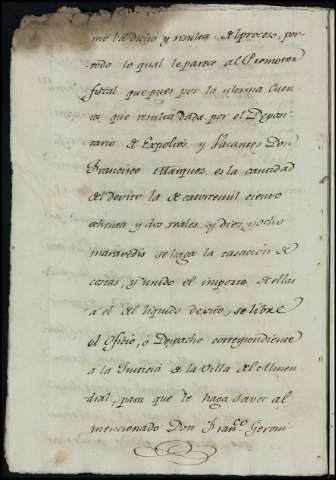 mo ha dicho y resulta del proceso, por
todo lo qual le parece al Promotor
fiscal que pues por la ultima Cuen-
ta, que resulta dada por el Depoci-
tario de Expolios y bacantes Don
Francisco Marquez es la cantidad
del devito la de catorcemil ciento
ochenta y dos reales, y diez, y ocho
maravedis se haga la tasación de
costas, y unido el importe de ellas
a el del liquido devito, se libre
el Oficio, ó Despacho correspondiente
a la Justicia de la Villa del Almen-
dral, para que le haga saver al
mencionado Don Fran.co Geroni-